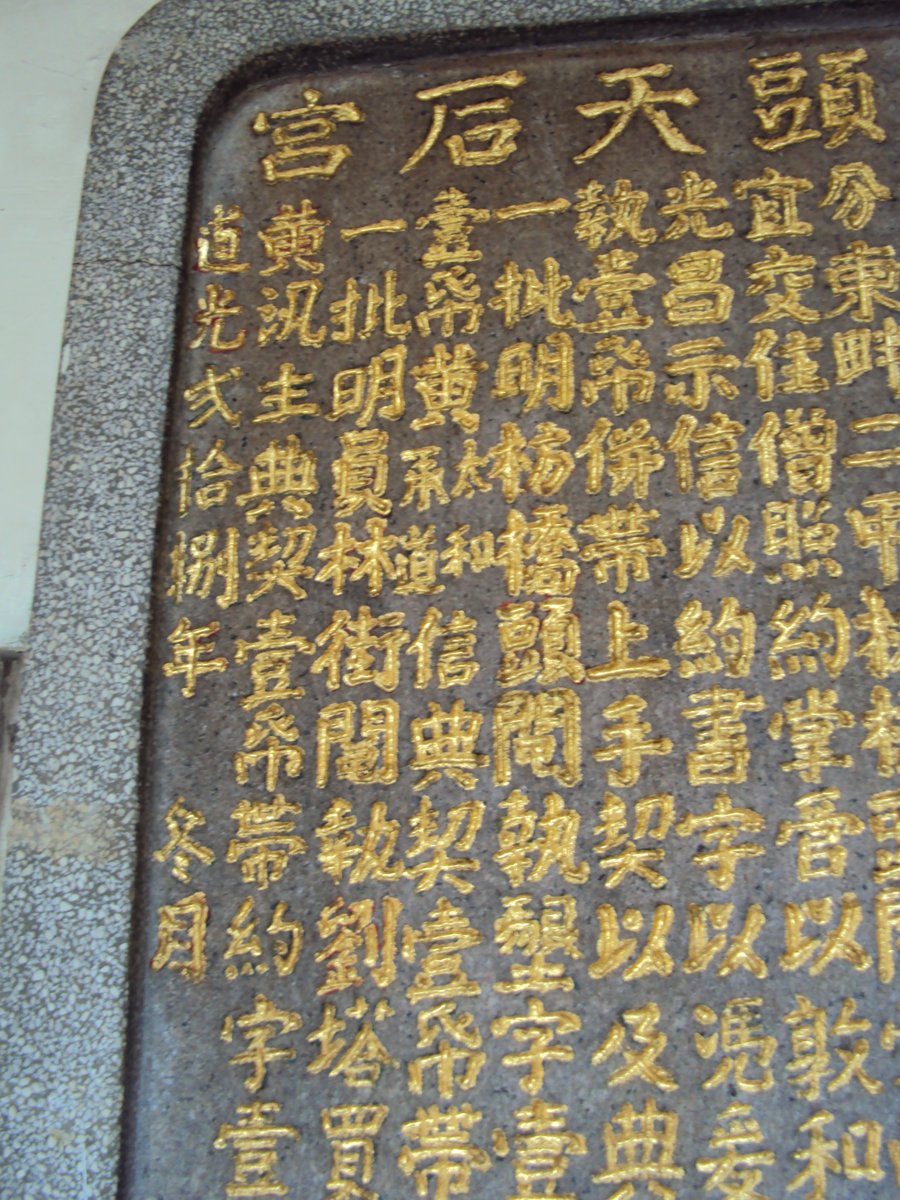 頭天后宮
分東畔二甲
宜交住僧照約掌管以敦和
光昌示信以約書字以憑爰
執壹帋併帶上手契以及典
一批明枋橋頭鬮執墾字壹
壹帋黃太和承道信典契壹帋帶
一批明員林街鬮執劉塔買
黃汛主典契壹帋帶約字壹
道光弍拾捌年冬月